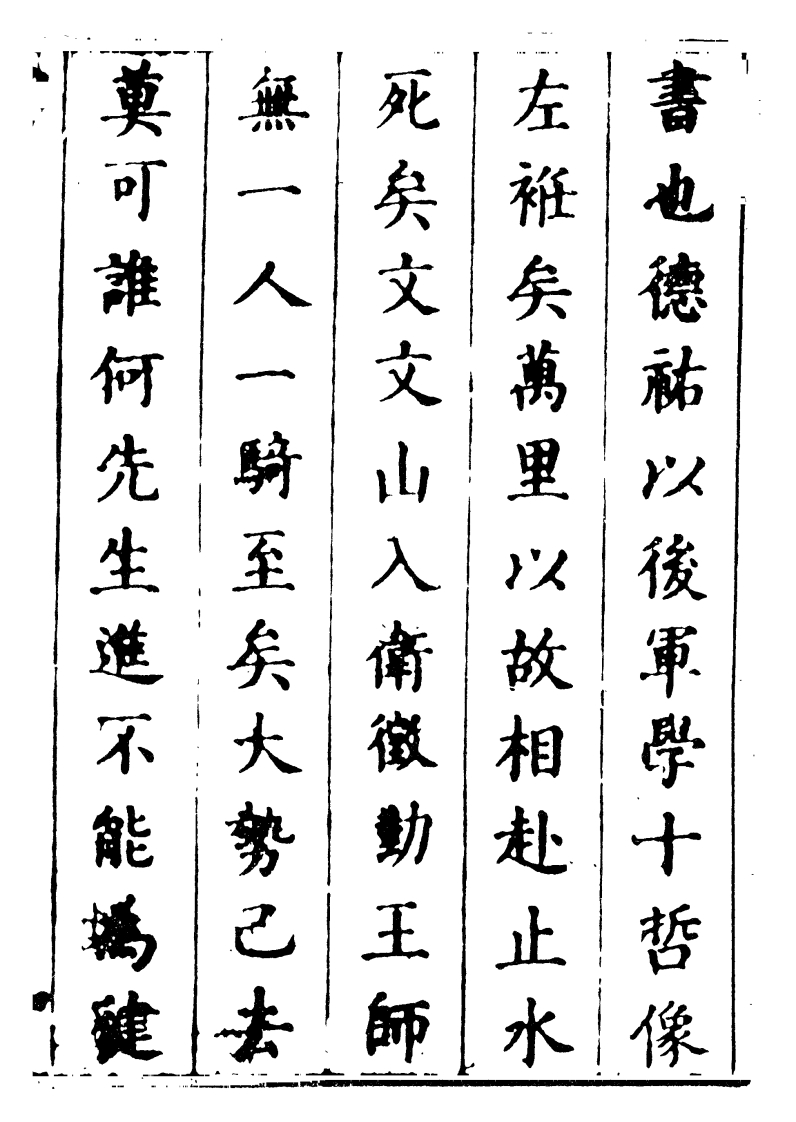 書也德祐以後軍學十哲像
左袵矣萬里以故相赴止水
死矣文文山入衛徵勤王師
無一人一騎至矣大勢己去
莫可誰何先生進不能